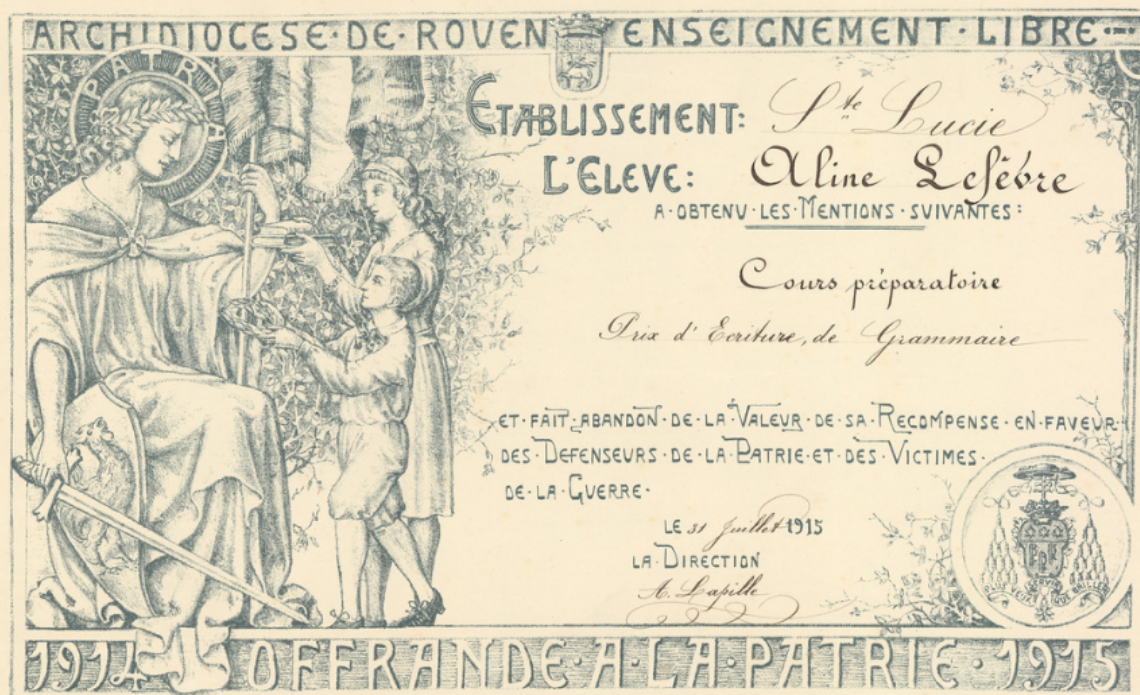 ARCHIDIOCESE·DE·ROVEN ENSEIGNEMENT·LIBRE
PATRIA
ETABLISSEMENT: Ste Lucie
L'ELEVE: Aline Lefèbre
A·OBTENV·LES·MENTIONS·SVIVANTES:
Cours préparatoire
Prix d'Ecriture, de Grammaire
ET·FAIT·ABANDON·DE·LA·VALEUR·DE·SA·RECOMPENSE·EN·FAVEUR·
DES·DEFENSEURS·DE·LA·PATRIE·ET·DES·VICTIMES·
DE·LA·GVERRE·
LE 31 Juillet 1915
LA·DIRECTION
A. Lapille
1914 OFFRANDE·A·LA·PATRIE·1915